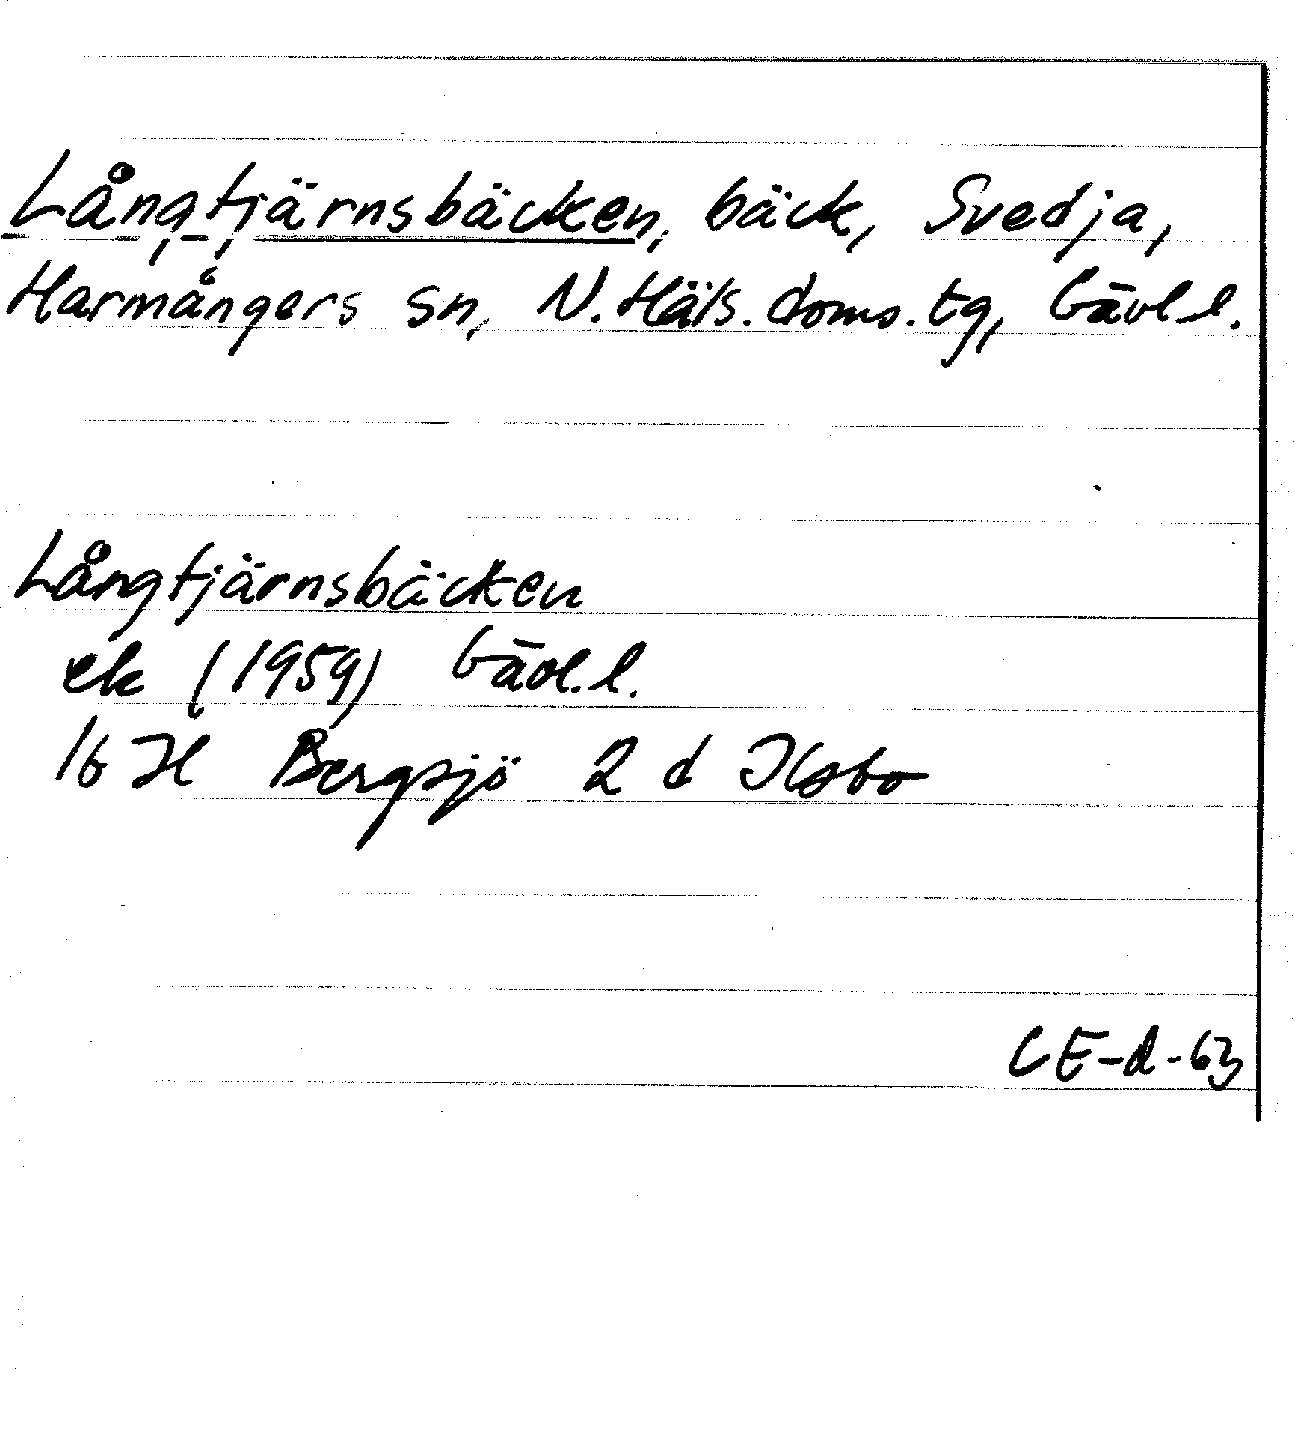 Långtjärnsbäcken, bäck, Svedja,
Harmångers sn, N. Häls. doms. tg, Gävl. l.
Långtjärnsbäcken
ek (1959) Gävl. l.
16 H Bergsjö 2 d Ilsbo
CE-d-63